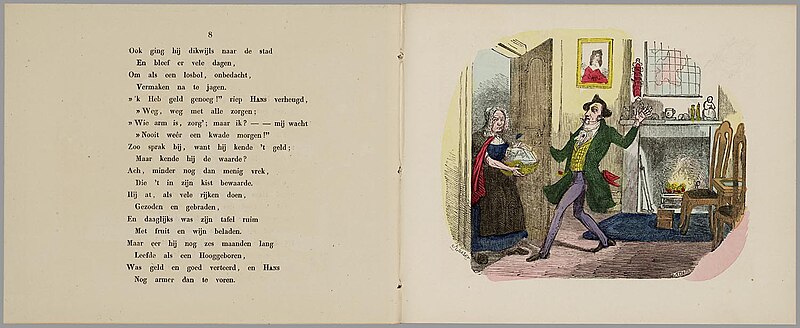 8
Ook ging hij dikwijls naar de stad
En bleef er vele dagen,
Om als een losbol, onbedacht,
Vermaken na te jagen.
»'k Heb geld genoeg!” riep Hans verheugd,
»Weg, weg met alle zorgen;
»Wie arm is, zorg'; maar ik? — — mij wacht
»Nooit weêr een kwade morgen!”
Zoo sprak hij, want hij kende 't geld;
Maar kende hij de waarde?
Ach, minder nog dan menig vrek,
Die 't in zijn kist bewaarde.
Hij at, als vele rijken doen,
Gezoden en gebraden,
En daaglijks was zijn tafel ruim
Met fruit en wijn beladen.
Maar eer hij nog zes maanden lang
Leefde als een Hooggeboren,
Was geld en goed verteerd, en Hans
Nog armer dan te voren.